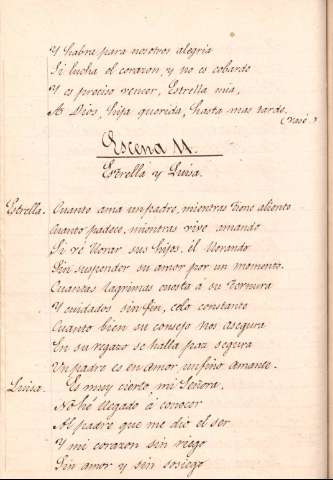 Y habra para nosotros alegria
Si lucha el corazon, y no es cobarde
Y es preciso vencer, Estrella mia,
A Dios, hija querida, hasta mas tarde.
(vase.)
Escena 11.
Estrella y Luisa.
Estrella. Cuanto ama un padre, mientras tiene aliento
Cuanto padece, mientras vive amando
Si vé llorar sus hijos, él llorando
Sin suspender su amor por un momento.
Cuantas lagrimas cuesta á su ternura
Y cuidados sin fin, celo constante
Cuanto bien su consejo nos asegura
En su regazo se halla paz segura
Un padre es en amor, un fino amante.
Luisa. Es muy cierto, mi Señora.
No hé llegado á conocer
Al padre que me dió el ser
Y mi corazon sin riego
Sin amor y sin sosiego